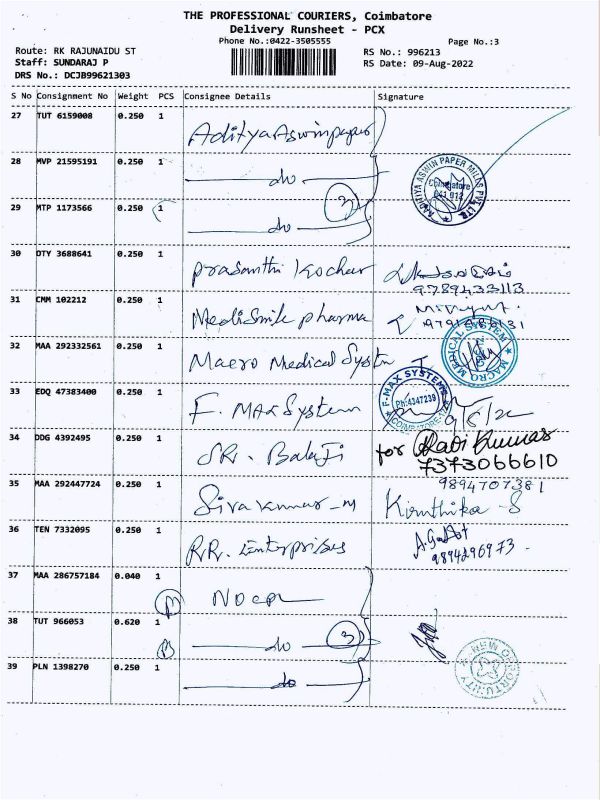 THE PROFESSIONAL COURIERS, Coimbatore
Delivery Runsheet - PCX
Phone No.:0422-3505555
Page No.:3
Route: RK RAJUNAIDU ST
RS No.: 996213
Staff: SUNDARAJ P
RS Date: 09-Aug-2022
DRS No.: DCJB99621303
S No Consignment No Weight PCS Consignee Details Signature
27 TUT 6159008 0.250 1 Aditya Aswin paper
28 MVP 21595191 0.250 1 do
ADHIYA ASWIN PAPER MILLS PVT. LTD. Coimbatore 641 012
29 MTP 1173566 0.250 1 do 3
30 DTY 3688641 0.250 1 prasanthi Kochar
9789433113
31 CMM 102212 0.250 1 MediSmile pharma
32 MAA 292332561 0.250 1 Macro Medical System
MACRO MEDICAL SYSTEM
33 EDQ 47383400 0.250 1 F. MAX System
F-MAX SYSTEMS Ph:4347239 COIMBATORE
9/8/22
34 DDG 4392495 0.250 1 SRI. BalaJi for Ravi Kumar
7373066610
35 MAA 292447724 0.250 1 Siva Kumar - M 9894707381
Kiruthika - S
36 TEN 7332095 0.250 1 RR. Enterprises
9894296973
37 MAA 286757184 0.040 1
38 TUT 966053 0.620 1 do 3
NEW OPPORTUNITY
39 PLN 1398270 0.250 1 do